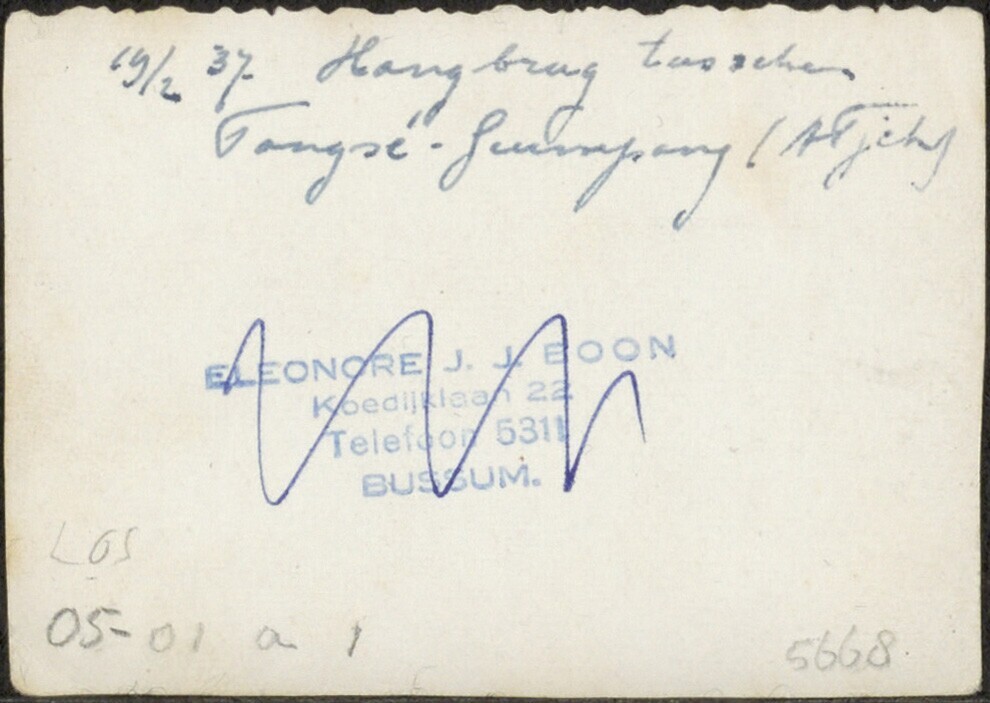 19/2 37. Hangbrug tusschen
Tangsé-Geumpang (Atjeh)
ELEONORE J. J. BOON
Koedijklaan 22
Telefoon 5311
BUSSUM.
LOS
05-01 a 1
5668